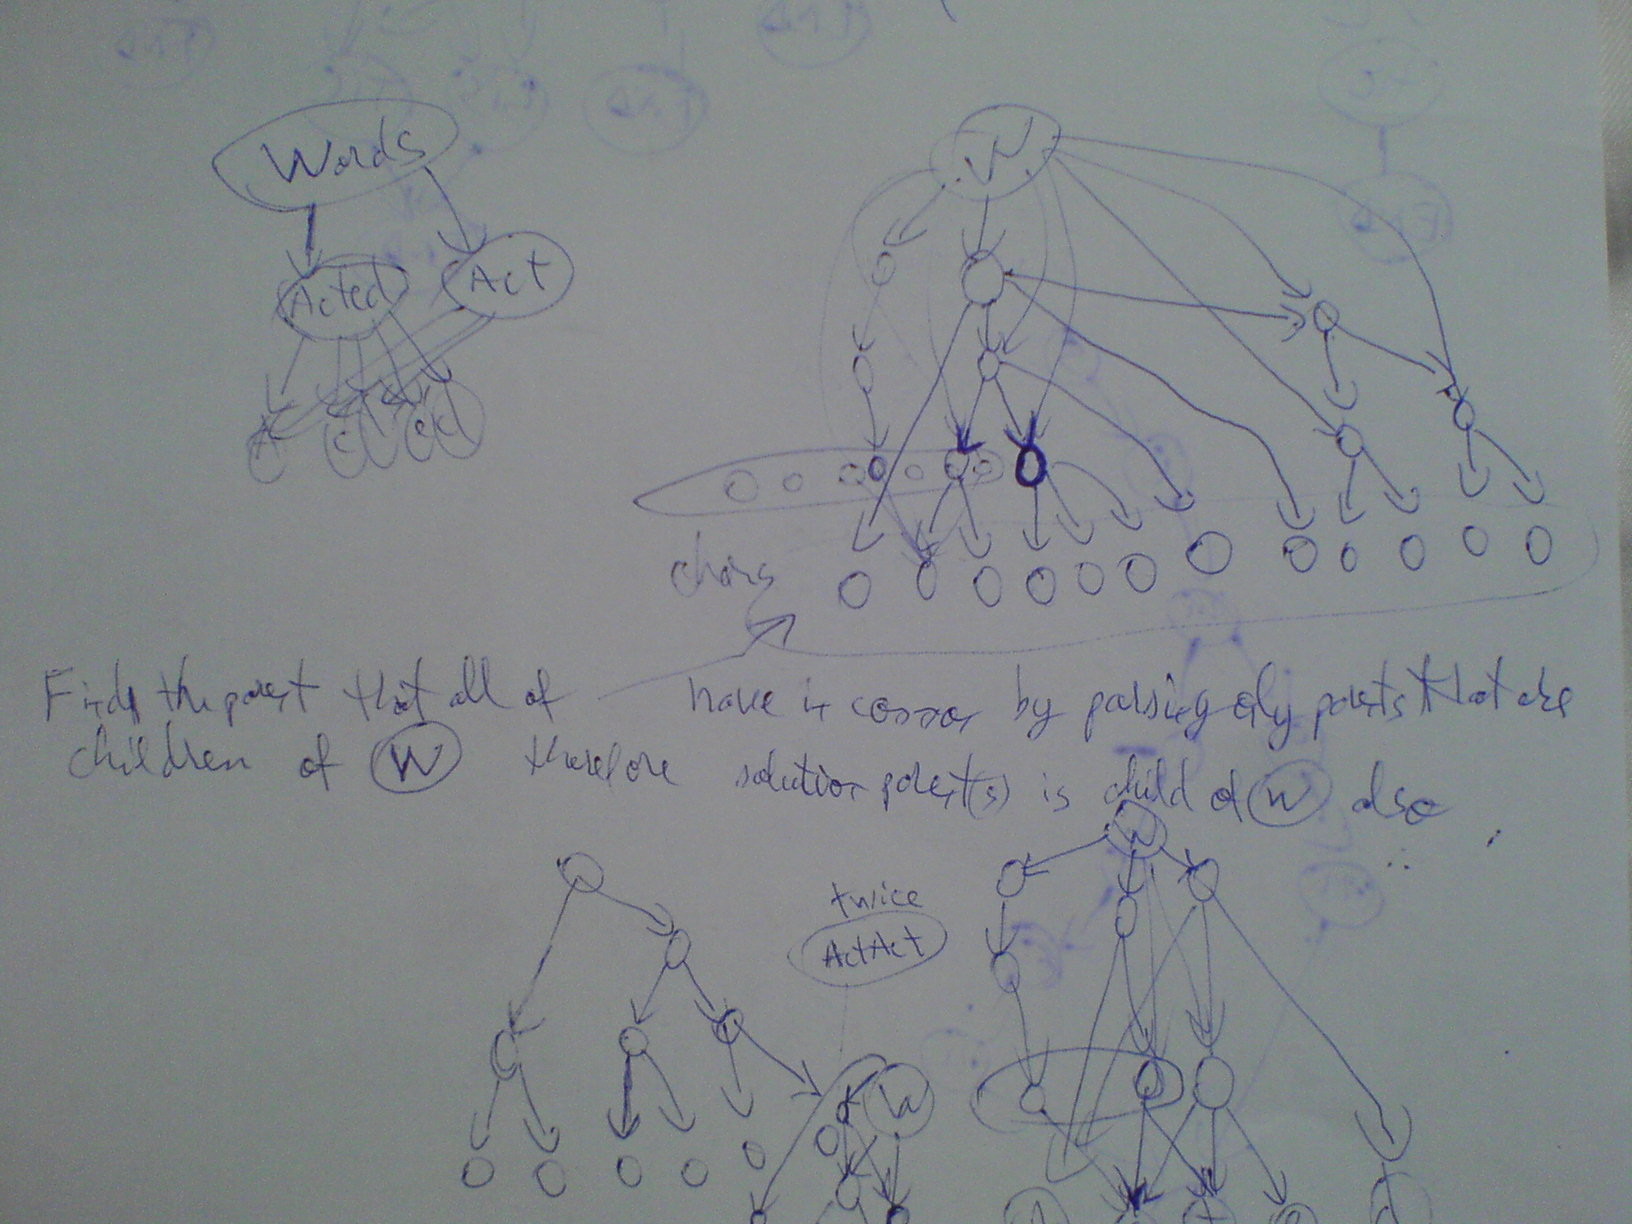 Words
W
Acted
Act
A
c
t
e
d
chars
Finds the parent that all of have in common by parsing only parents that are
children of W therefore solution parent(s) is child of W also
W
twice
ActAct
d